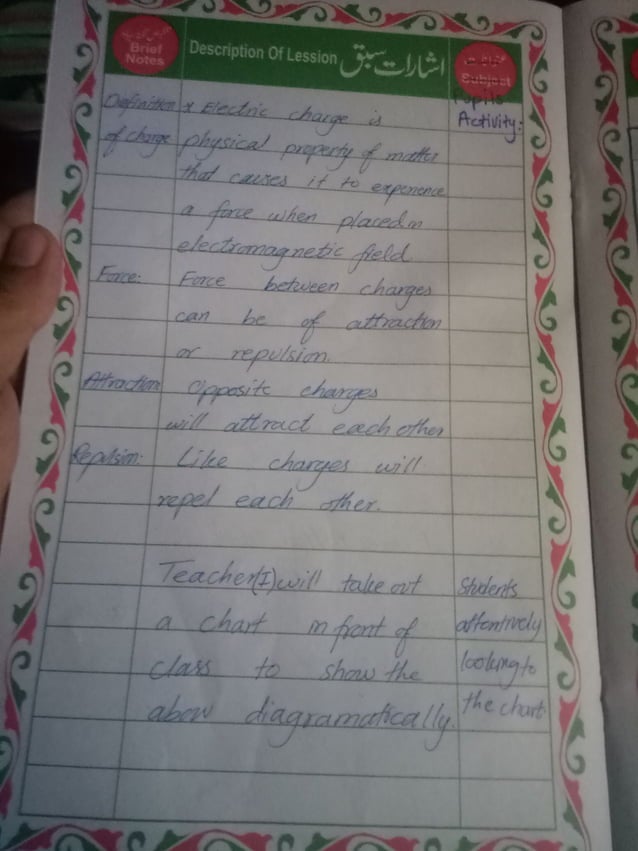 Brief
Notes
Description Of Lession اشارات سبق
Subject
Pupils
Activity:
Definition x Electric charge is
of charge physical property of matter
that causes it to experience
a force when placed in
electromagnetic field
Force: Force between charges
can be of attraction
or repulsion.
Attraction: Opposite charges
will attract each other
Repulsion: Like charges will
repel each other.
Teacher(I) will take out Students
a chart in front of attentively
class to show the looking to
abov diagramatically. the chart